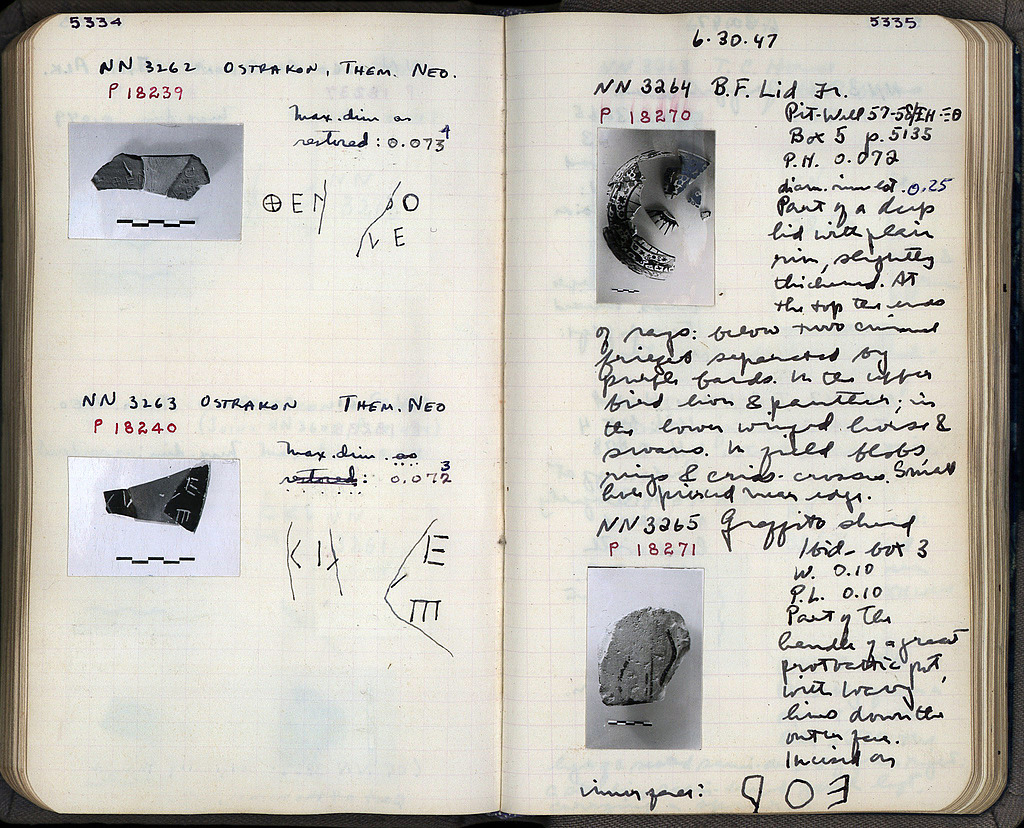 5334
NN 3262 OSTRAKON, THEM. NEO.
P 18239
Max. dim as
restored: 0.073 4
⊕ E N
O
V E
NN 3263 OSTRAKON THEM. NEO
P 18240
Max. dim. as
restored: 0.072 3
K I
E
E
5335
6.30.47
NN 3264 B.F. Lid Fr.
P 18270
Pit-Well 57-58/ΙΗ-ΞΘ
Box 5 p. 5135
P.H. 0.072
diam. rim est. 0.25
Part of a deep
lid with plain
rim, slightly
thickened. At
the top the ends
of rays: below two animal
friezes separated by
purple bands. In the upper
bird lion & panther; in
the lower winged horse &
swans. In field blobs,
rings & criss-crosses. Small
hole pierced near edge.
NN 3265 Graffito sherd
P 18271
Ibid - box 3
W. 0.10
P.L. 0.10
Part of the
handle of a great
protoattic pot,
with wavy
lines down the
outer face.
Incised on
inner face:
O Ǝ